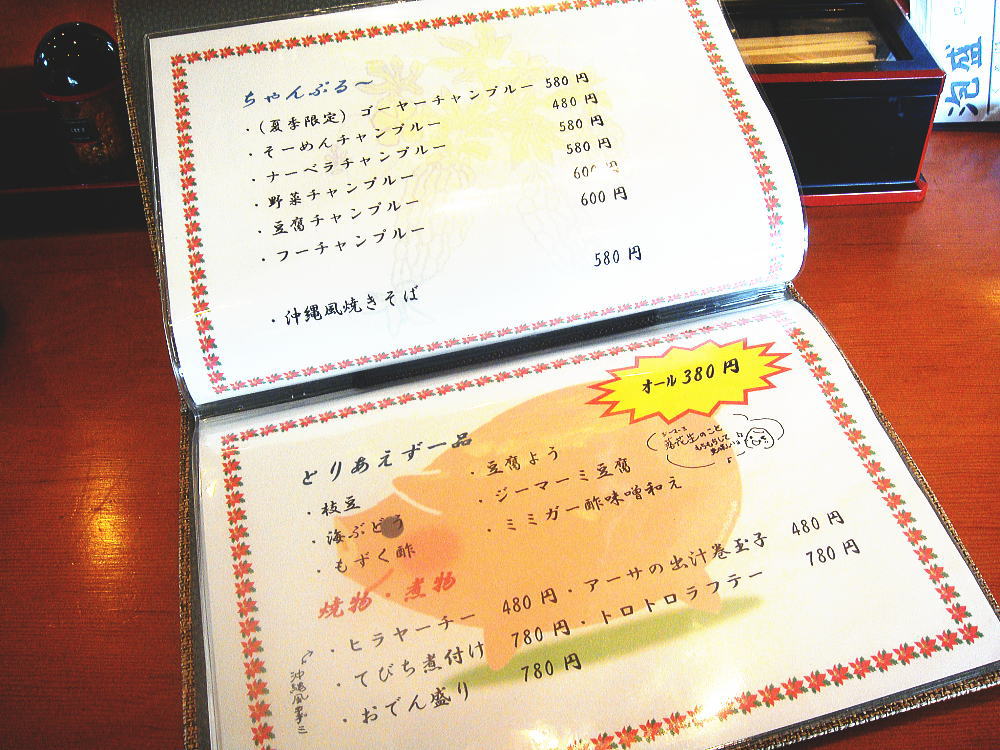 ちゃんぷる〜
・(夏季限定) ゴーヤーチャンプルー 580円
・そーめんチャンプルー 480円
・ナーベラチャンプルー 580円
・野菜チャンプルー 580円
・豆腐チャンプルー 600円
・フーチャンプルー 600円
・沖縄風焼きそば 580円
オール380円
とりあえず一品
・枝豆
・海ぶどう
・もずく酢
・豆腐よう
・ジーマーミ豆腐
・ミミガー酢味噌和え
落花生のこと
もちもちして
美味しいよ
焼物・煮物
・ヒラヤーチー 480円
・てびち煮付け 780円
・おでん盛り 780円
・アーサの出汁巻玉子 480円
・トロトロラフテー 780円
泡盛